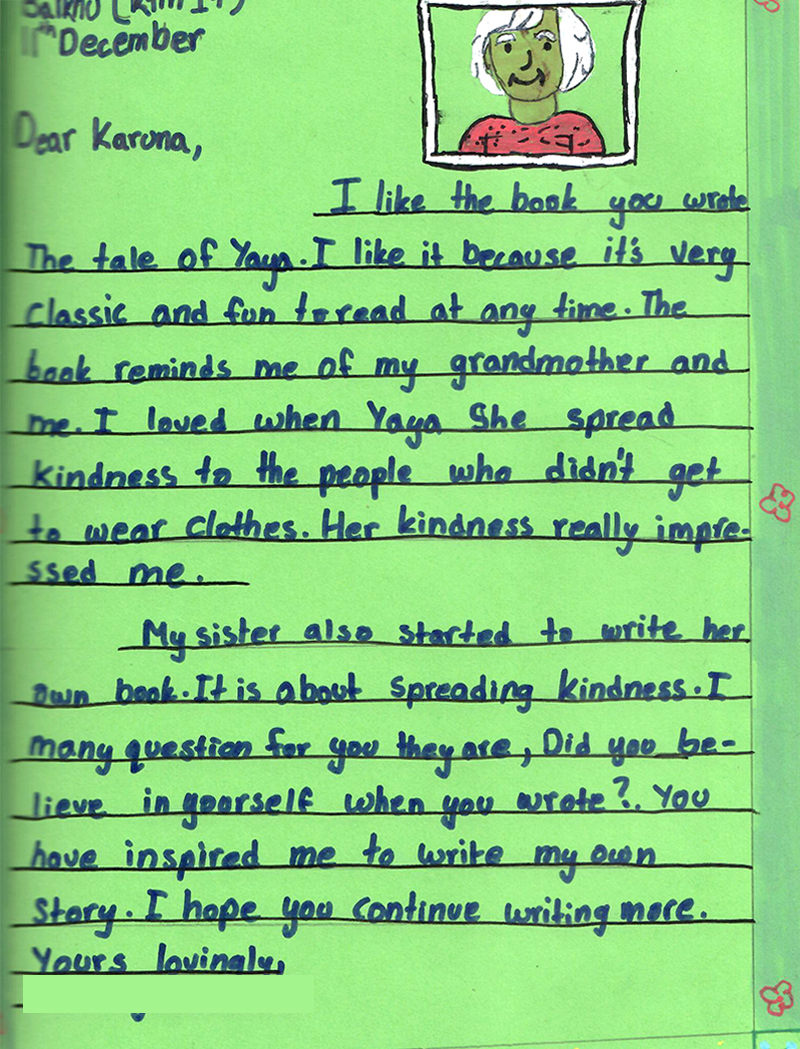 11th December
Dear Karuna,
I like the book you wrote
The tale of Yaya. I like it because it's very
classic and fun to read at any time. The
book reminds me of my grandmother and
me. I loved when Yaya She spread
kindness to the people who didn't get
to wear clothes. Her kindness really impre-
ssed me.
My sister also started to write her
own book. It is about spreading kindness. I
many question for you they are, Did you be-
lieve in yourself when you wrote?. You
have inspired me to write my own
story. I hope you continue writing more.
Yours lovingly,